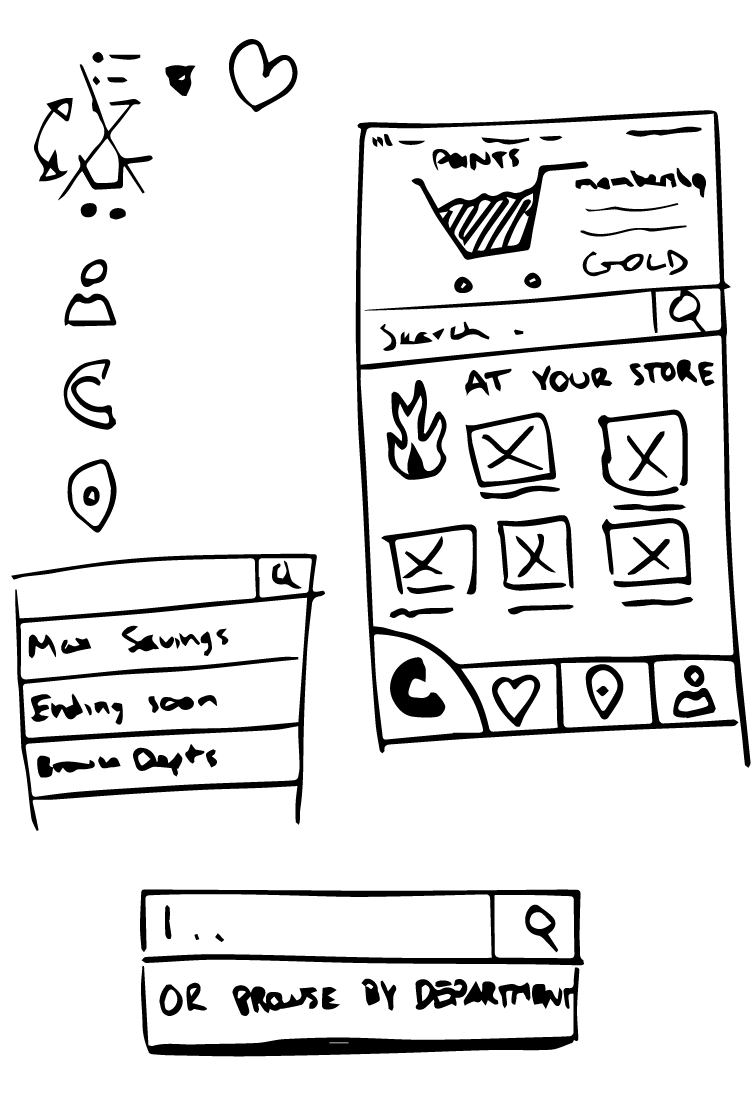 POINTS
membership
GOLD
Search .
AT YOUR STORE
Max Savings
Ending soon
Browse Depts
I . .
OR BROWSE BY DEPARTMENT